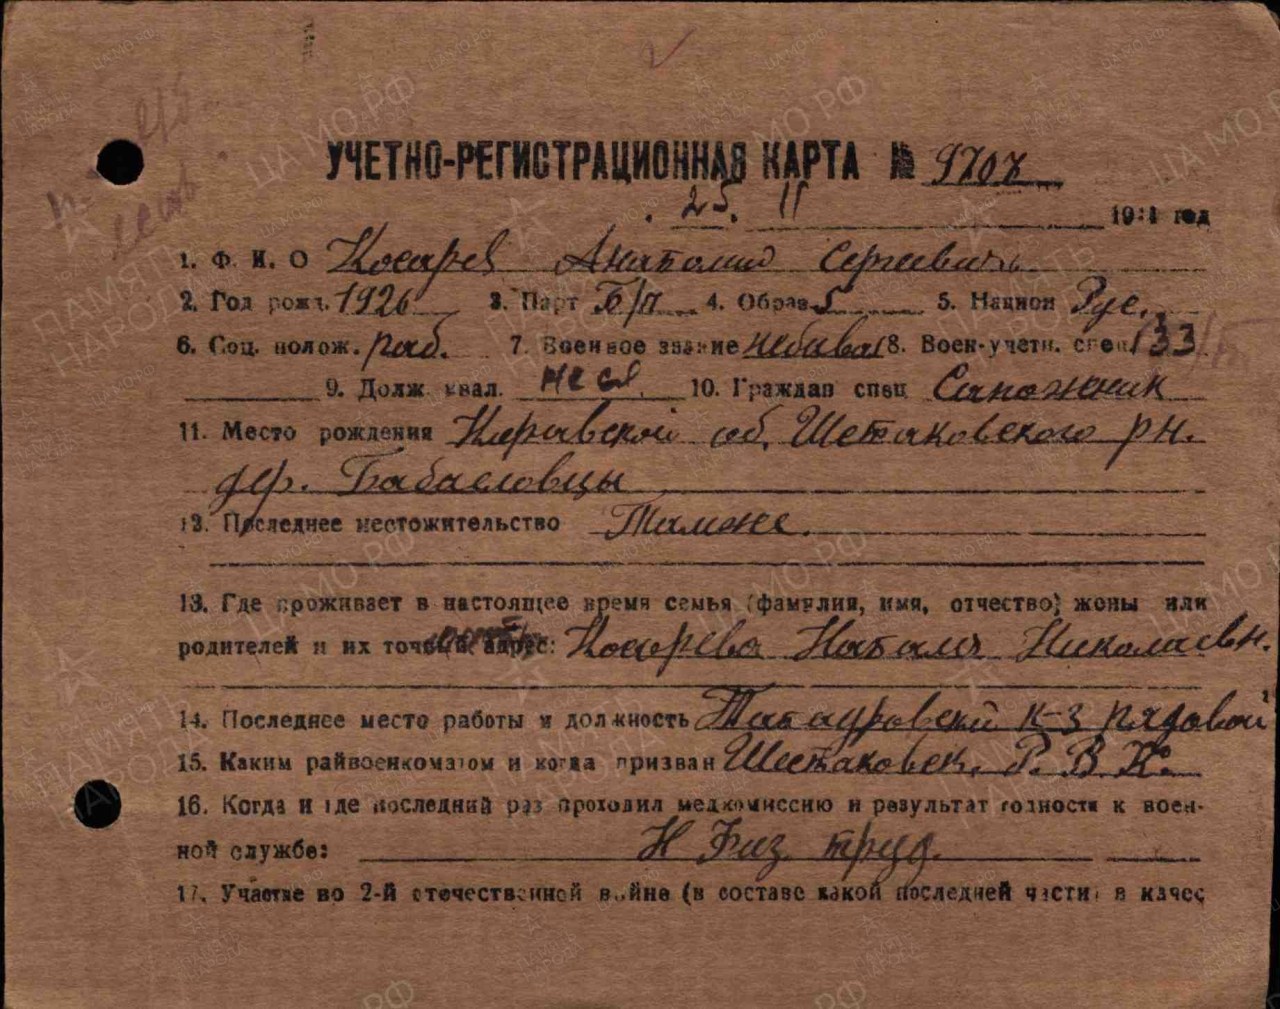 УЧЕТНО-РЕГИСТРАЦИОННАЯ КАРТА № 9707
25. II 1944 год
1. Ф. И. О Косарев Анатолий Сергеевичь
2. Год рожд. 1926 3. Парт Б/п 4. Образ 5 5. Национ Рус.
6. Соц. полож. раб. 7. Военное звание небывал 8. Воен-учетн. спец 133
9. Долж. квал. 10. Граждан спец Сапожник
11. Место рождения Кировской об. Шестаковского рн.
дер. Бабасловцы
12. Последнее местожительство Таможе.
13. Где проживает в настоящее время семья (фамилия, имя, отчество) жоны или
родителей и их точный адрес: Косарева Наталя Николаевн.
14. Последнее место работы и должность Татауровский к-з рядовой
15. Каким райвоенкоматом и когда призван Шестаковск. Р. В. К.
16. Когда и где последний раз проходил медкомиссию и результат годности к воен-
ной службе: Н Физ. труд.
17. Участие во 2-й отечественной войне (в составе какой последней части) в качес
ЦА МО.РФ
ПАМЯТЬ НАРОДА